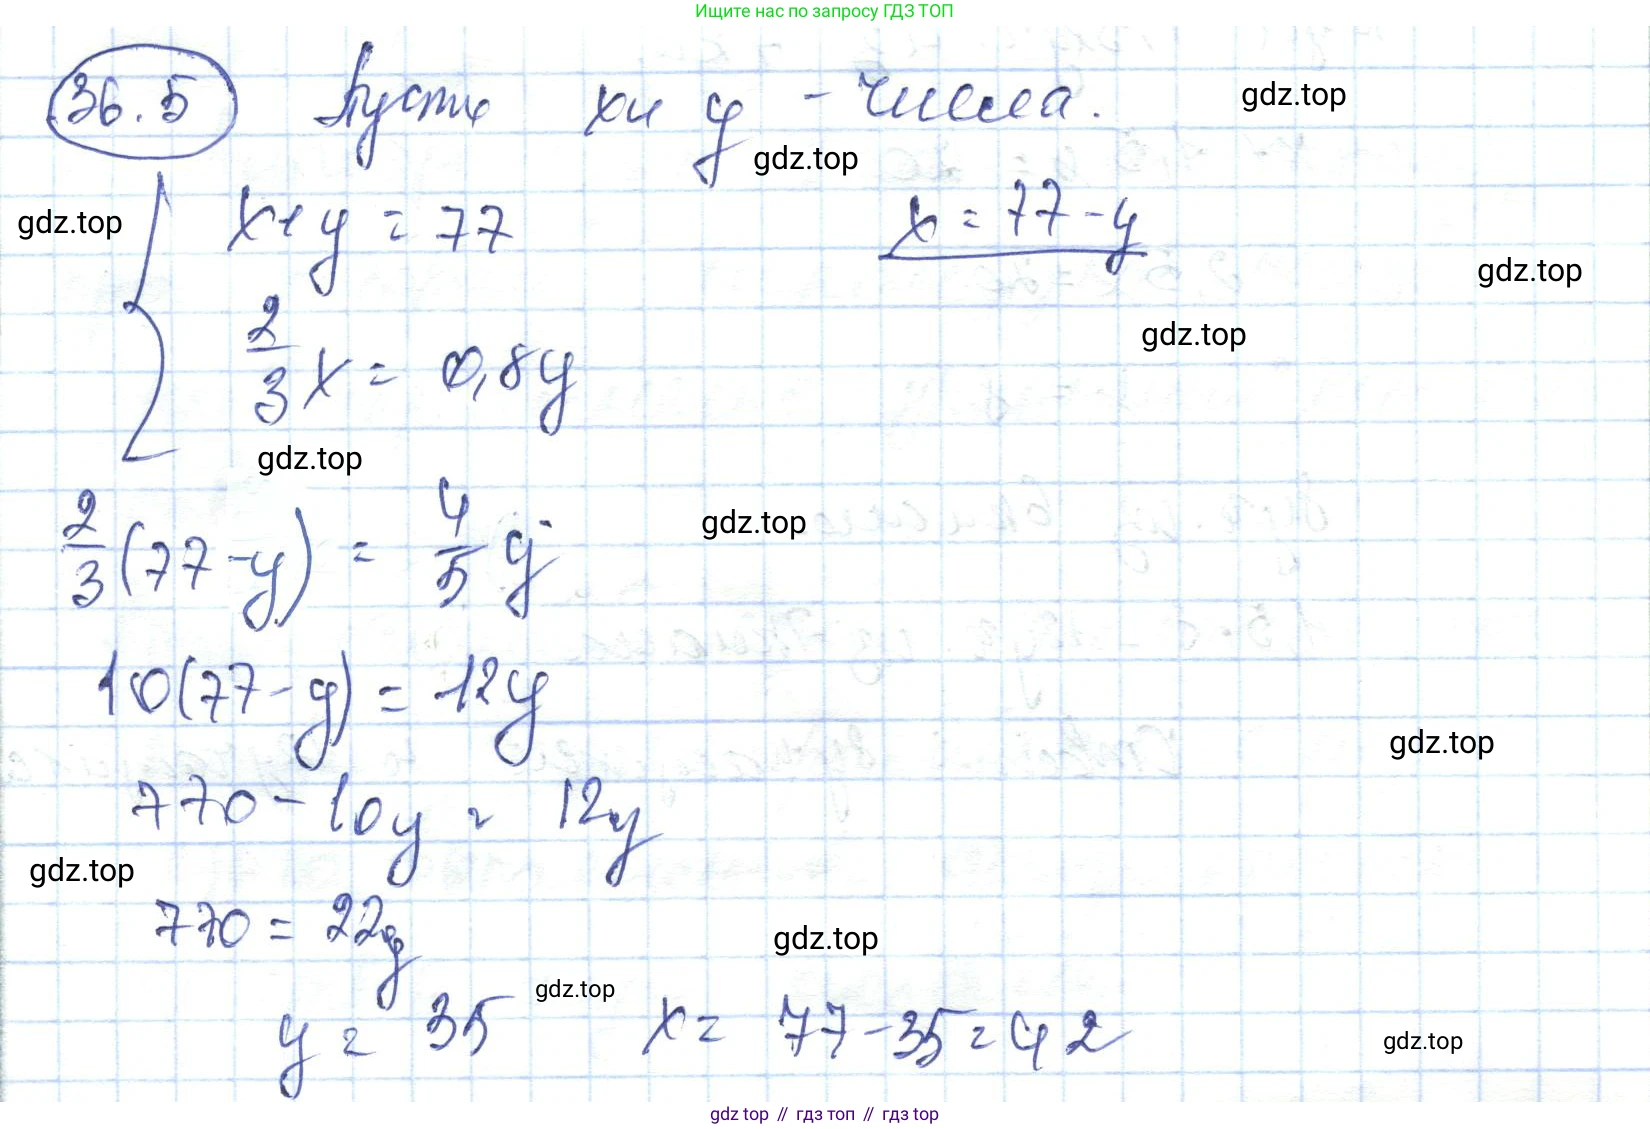 Ищите нас по запросу ГДЗ ТОП
36.5 Пусть x и y - числа.
gdz.top
gdz.top
x+y = 77
x = 77-y
gdz.top
gdz.top
2/3 x = 0,8y
gdz.top
gdz.top
2/3 (77-y) = 4/5 y
gdz.top
10(77-y) = 12y
gdz.top
770-10y = 12y
gdz.top
770 = 22y
gdz.top
y = 35 x = 77-35=42
gdz.top
gdz.top
gdz top // гдз топ // гдз top